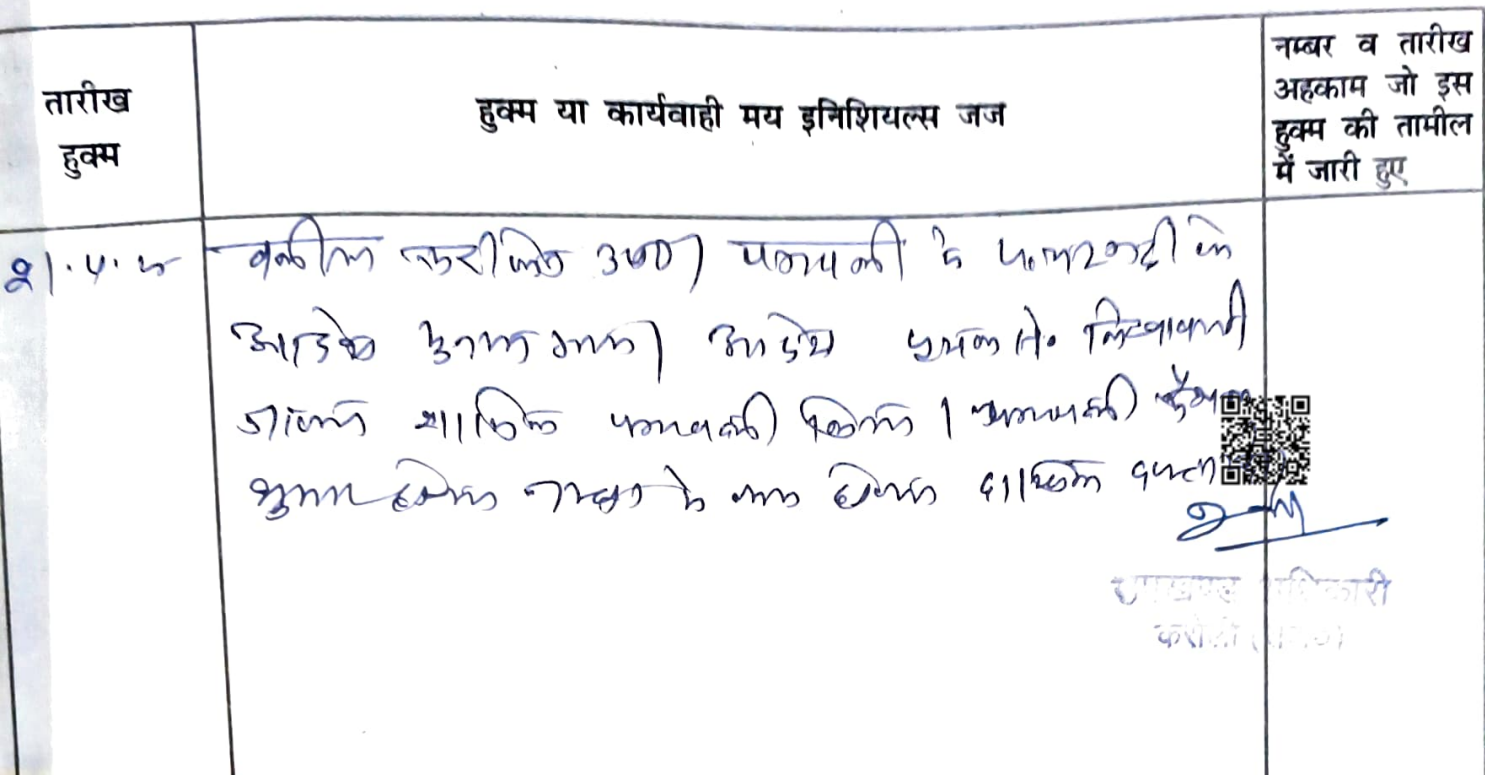 तारीख
हुक्म
हुक्म या कार्यवाही मय इनिशियल्स जज
नम्बर व तारीख
अहकाम जो इस
हुक्म की तामील
में जारी हुए
वकील उप0। पत्रावली के
आदेश सुनाया गया। आदेश पृथक से लिखवाया
जाकर शामिल पत्रावली किया। पत्रावली फैसल
शुमार होकर के बाद दाखिल दफ्तर
उपखण्ड अधिकारी
करौली (राज0)